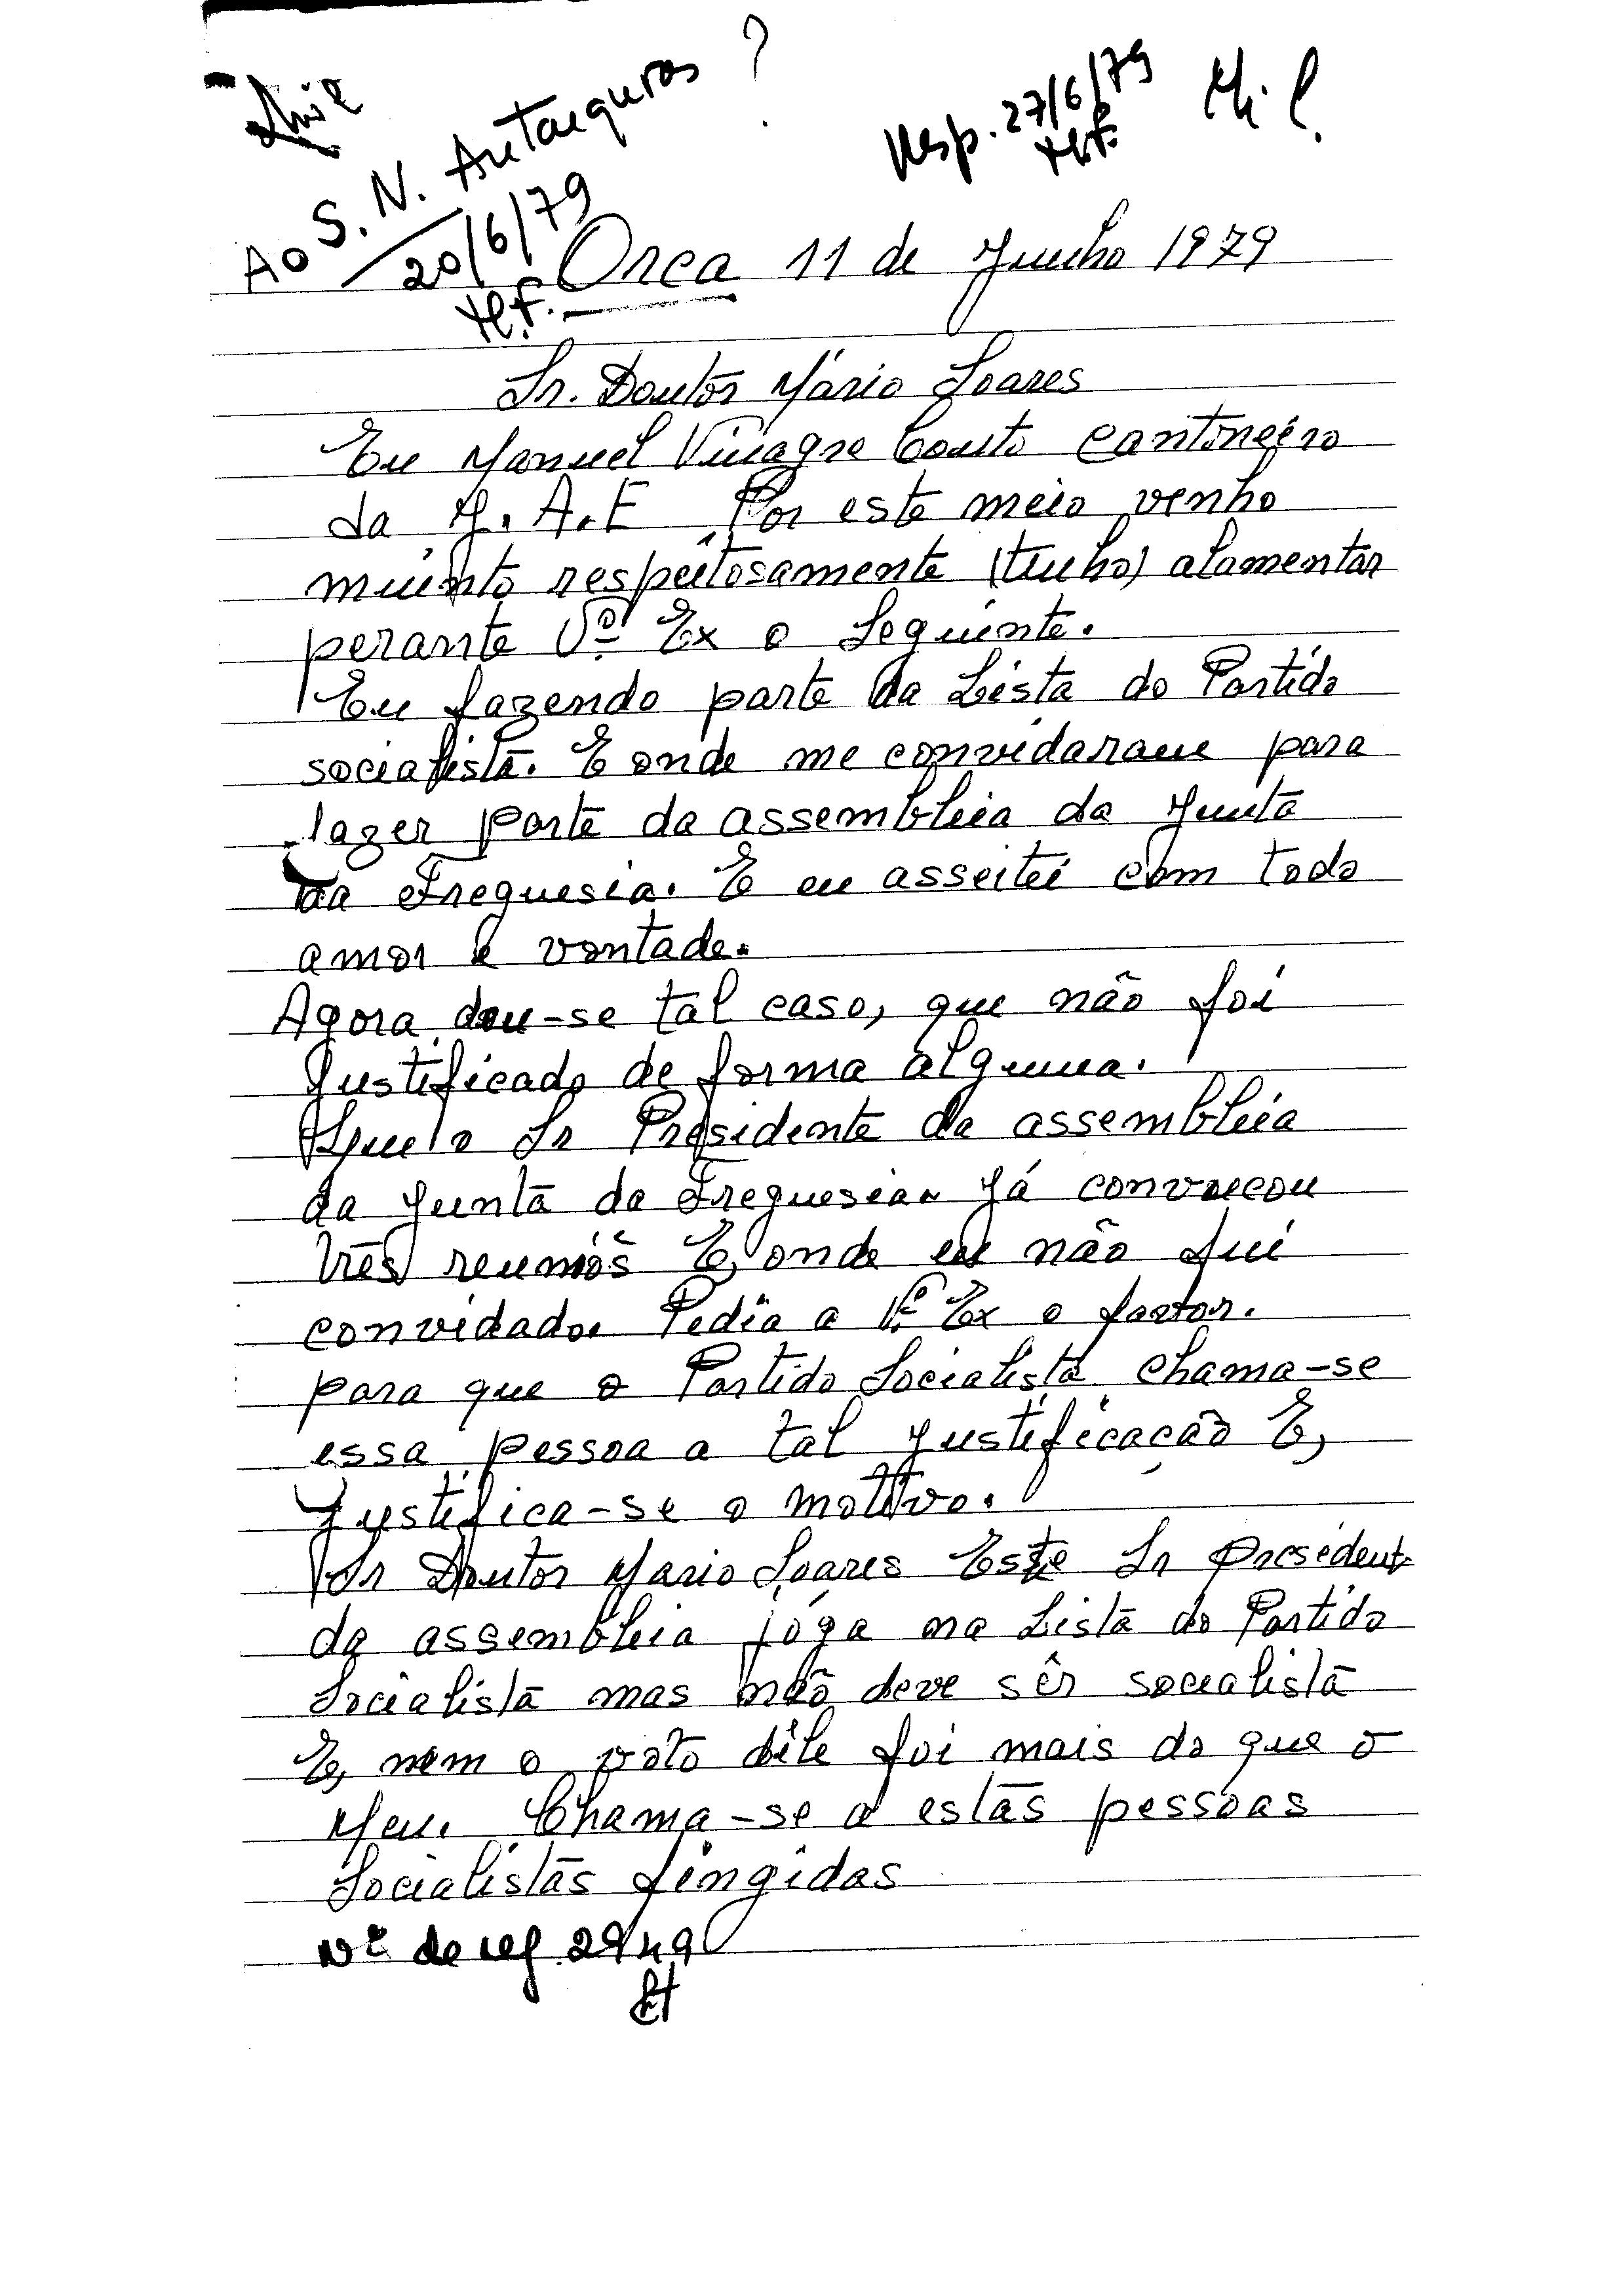 Ao S. N. Autarquias ?
20/6/79
H.F.
Resp. 27/6/79
H.F.
Orca 11 de Junho 1979
Sr. Doutôr Mário Soares
Eu Manuel Vinagre Couto Cantoneiro
da J. A. E Por este meio venho
muinto respeitosamente (tenho) alamentar
perante Vª Ex o Seguinte.
Eu fazendo parte da Lista do Partido
socialistã. E onde me convidaram para
fazer parte da assembleia da Juntã
da Freguesia. E eu asseitei com todo
amor e vontade.
Agora deu-se tal caso, que não foi
Justificado de forma alguma.
Que o Sr Presidente da assembleia
da Juntã da Freguesia Já convoucou
três reuniõs E, onde eu não fui
convidado. Pedia a Vª Ex o favor.
para que o Partido Socialista chama-se
essa pessoa a tal justificação E,
Justifica-se o motivo.
Sr Doutor Mario Soares Este Sr President
da assembleia jóga na Listã do Partido
Socialistã mas não deve sêr socialistã
E, nem o voto dêle foi mais do que o
Meu. Chama-se a estãs pessoas
Socialistãs fingidas
Nº de ref. 2949